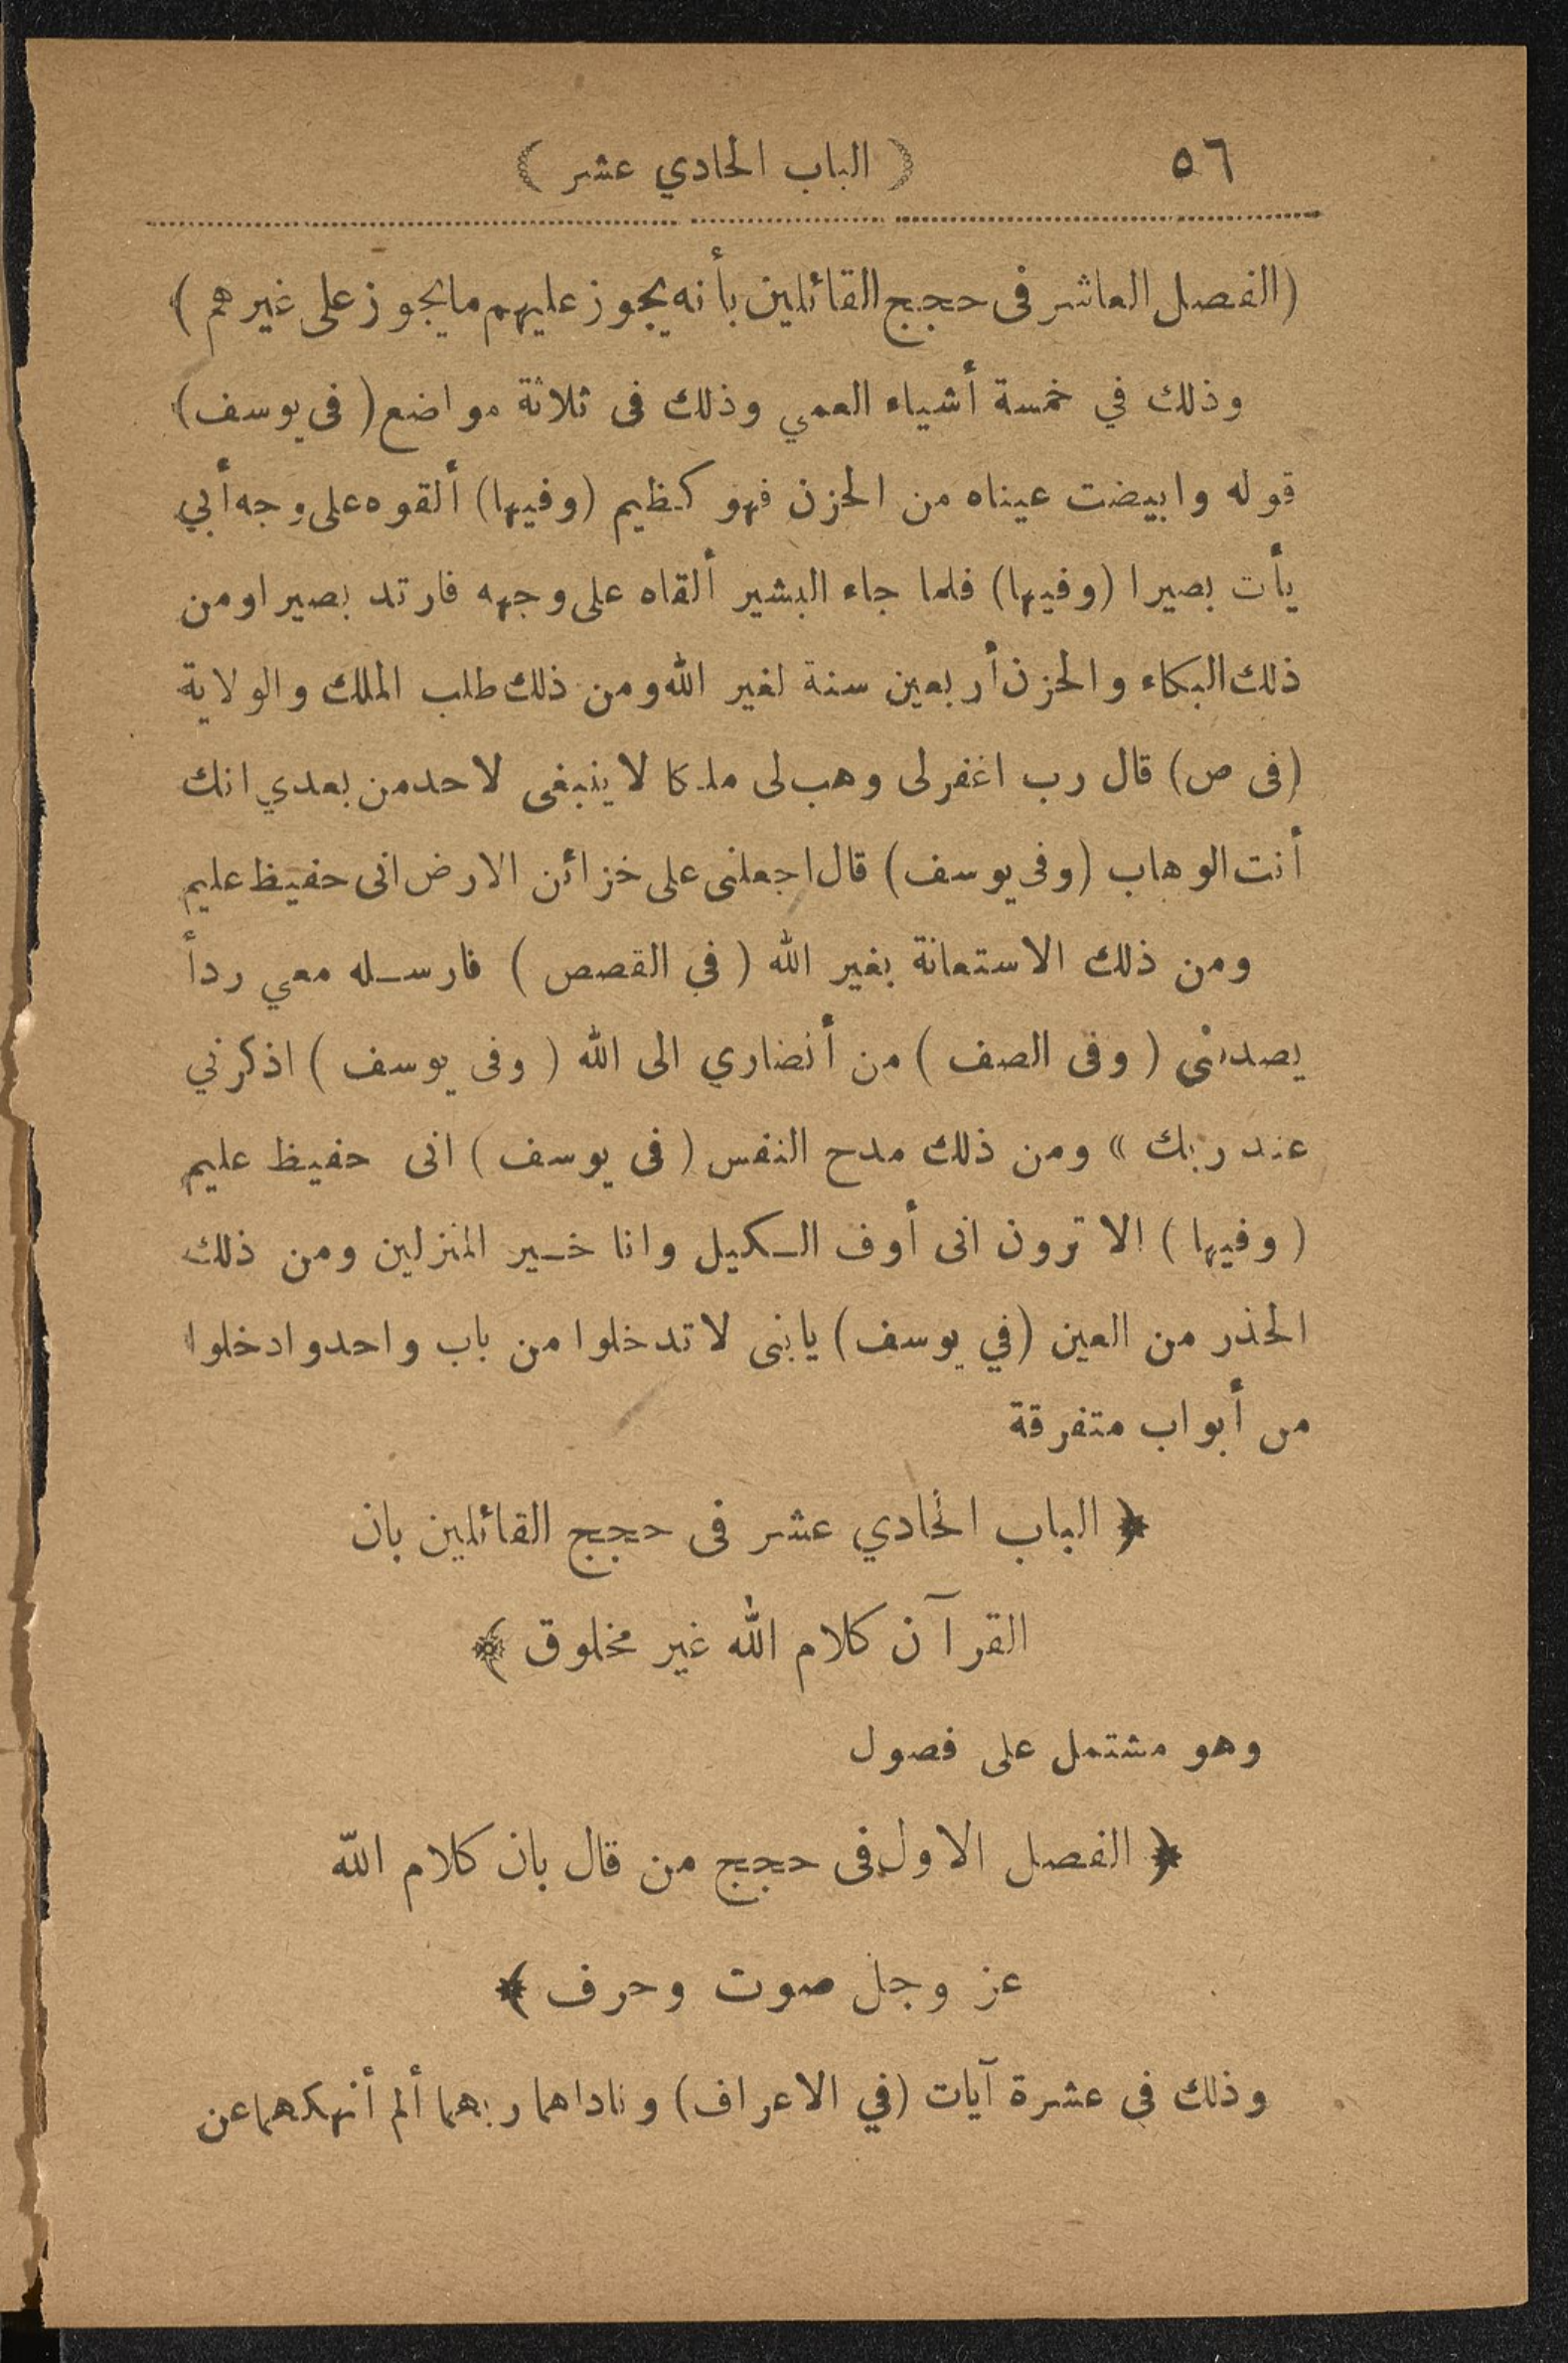 ٥٦ ( الباب الحادي عشر )
(الفصل العاشر فى حجج القائلين بأنه يجوز عليهم مايجوز على غيرهم )
وذلك في خمسة أشياء العمي وذلك فى ثلاثة مواضع ( فى يوسف)
قوله وابيضت عيناه من الحزن فهو كظيم (وفيها) ألقوه على وجه أبي
يأت بصيرا (وفيها) فلما جاء البشير ألقاه على وجهه فارتد بصيرا ومن
ذلك البكاء والحزن أربعين سنة لغير الله ومن ذلك طلب الملك والولاية
(فى ص) قال رب اغفر لى وهب لى ملكا لا ينبغى لاحد من بعدي انك
أنت الوهاب (وفى يوسف) قال اجعلنى على خزائن الارض انى حفيظ عليم
ومن ذلك الاستعانة بغير الله ( في القصص ) فارسله معي ردأ
يصدقنى ( وفى الصف ) من أنصاري الى الله ( وفى يوسف ) اذكرني
عند ربك » ومن ذلك مدح النفس ( فى يوسف ) انى حفيظ عليم
( وفيها ) الا ترون انى أوف الكيل وانا خير المنزلين ومن ذلك
الحذر من العين (في يوسف) يا بنى لا تدخلوا من باب واحد وادخلوا
من أبواب متفرقة
﴿ الباب الحادي عشر فى حجج القائلين بان
القرآن كلام الله غير مخلوق ﴾
وهو مشتمل على فصول
﴿ الفصل الاول فى حجج من قال بان كلام الله
عز وجل صوت وحرف ﴾
وذلك فى عشرة آيات (في الاعراف) وناداهما ربهما ألم أنهكما عن